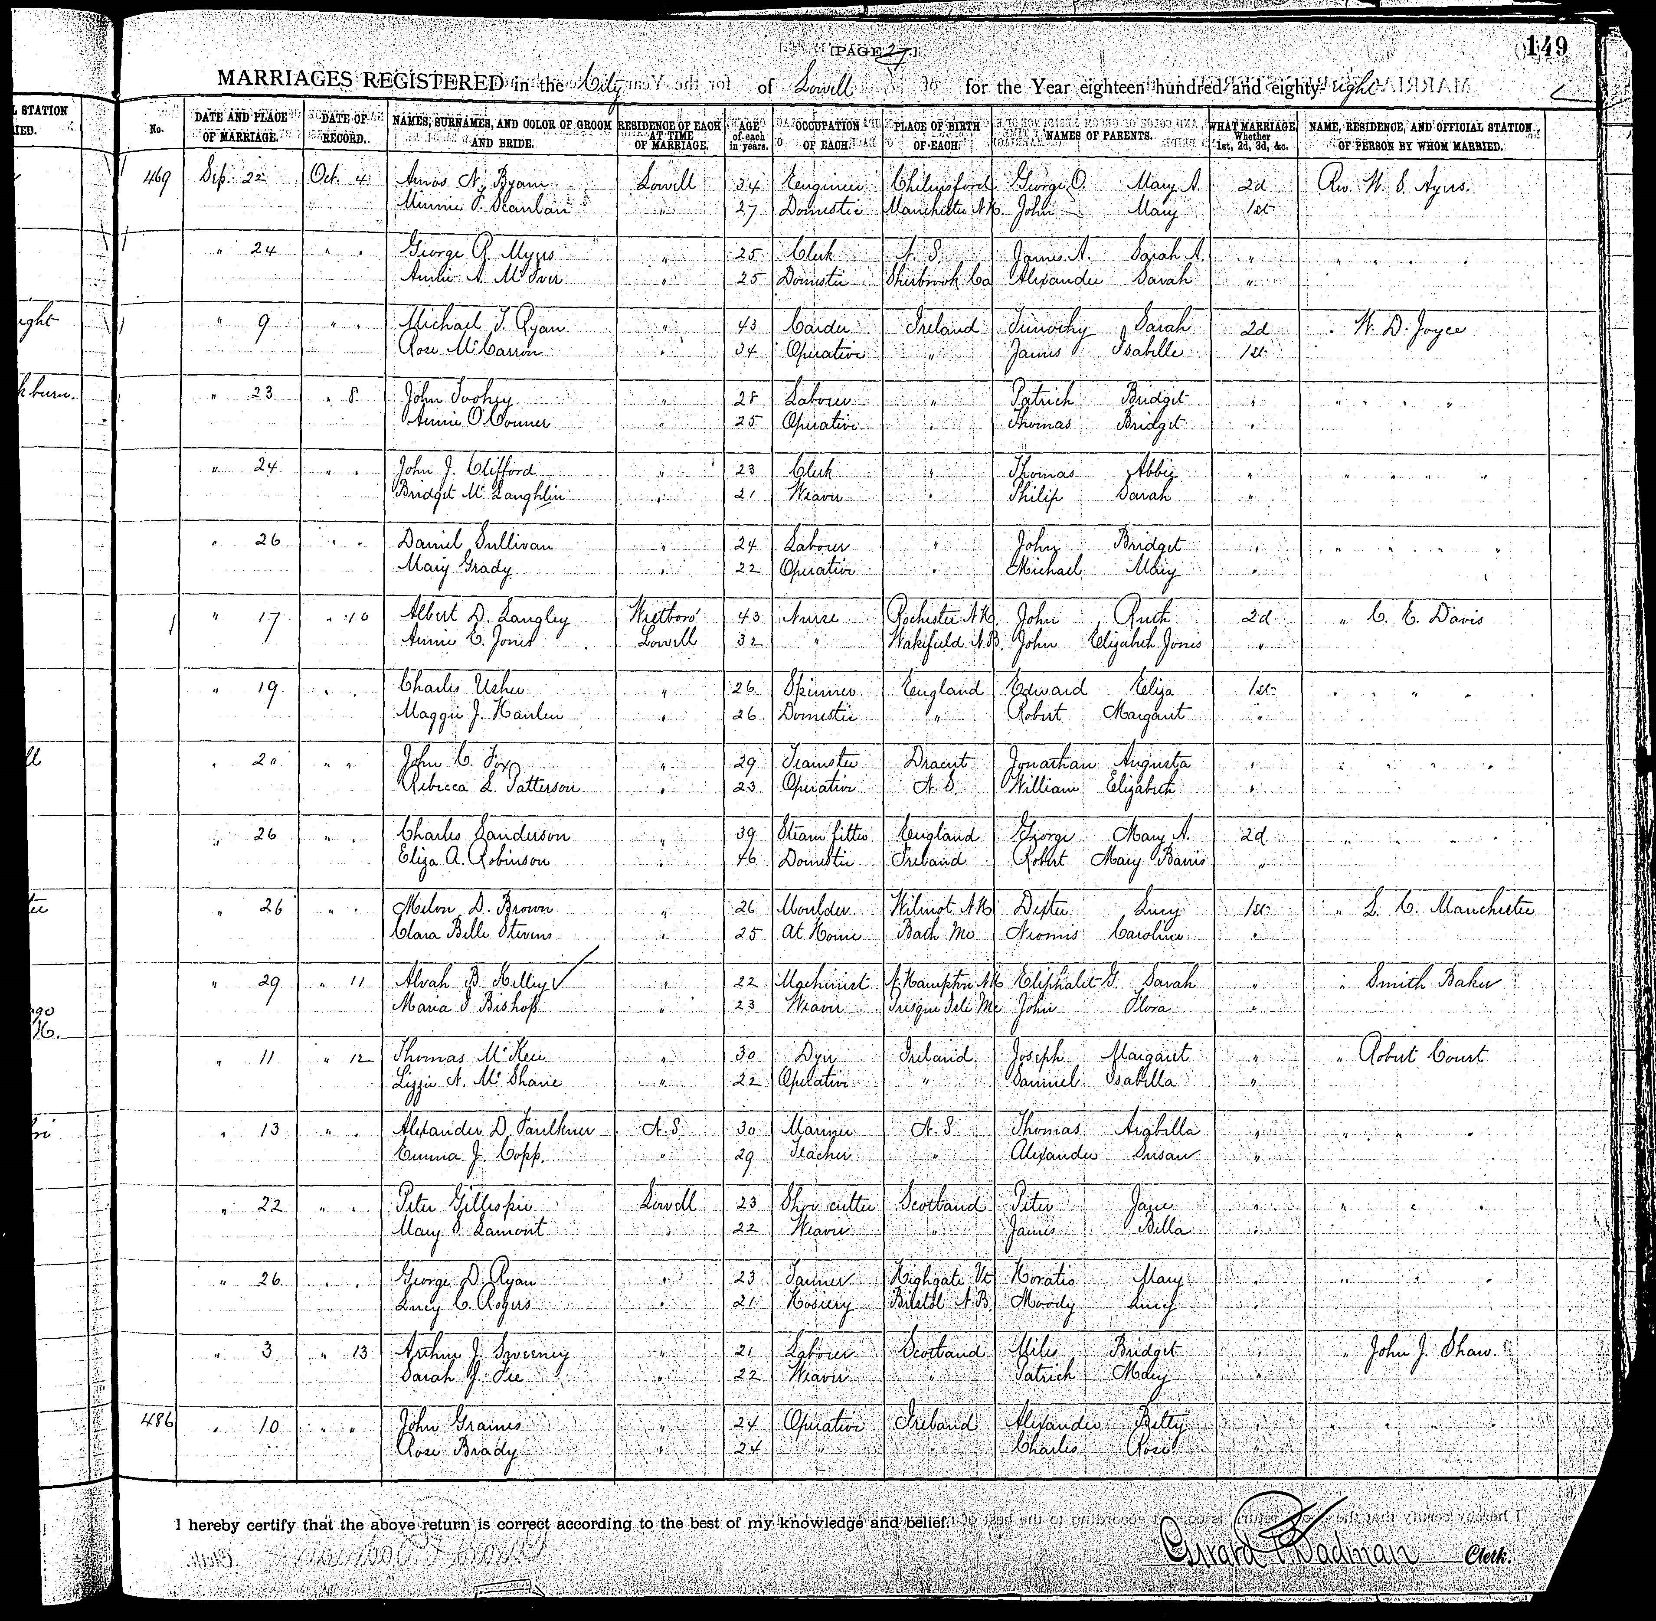 [PAGE 27]
149
MARRIAGES REGISTERED in the City of Lowell for the Year eighteen hundred and eighty-eight
No. DATE AND PLACE OF MARRIAGE. DATE OF RECORD. NAMES, SURNAMES, AND COLOR OF GROOM AND BRIDE. RESIDENCE OF EACH AT TIME OF MARRIAGE. AGE of each in years. OCCUPATION OF EACH. PLACE OF BIRTH OF EACH. NAMES OF PARENTS. WHAT MARRIAGE, Whether 1st, 2d, 3d, &c. NAME, RESIDENCE, AND OFFICIAL STATION OF PERSON BY WHOM MARRIED.
469 Sep. 22 Oct. 4 Amos N. Byam Lowell 34 Engineer Chelmsford George O. Mary A. 2d Rev. W. S. Ayres.
Minnie F. Scanlan " 27 Domestic Manchester N.H. John Mary 1st
" 24 " " George R. Myers " 25 Clerk N. S. James A. Sarah A. " " " " "
Annie A. McIver " 25 Domestic Sherbrook Ca Alexander Sarah "
" 9 " " Michael T. Ryan " 43 Carder Ireland Timothy Sarah 2d " W. D. Joyce
Rose McCarron " 34 Operative " James Isabelle 1st
" 23 " 8 John Toohey " 28 Laborer " Patrick Bridget " " " " "
Annie O'Conner " 25 Operative " Thomas Bridget "
" 24 " " John J. Clifford " 23 Clerk " Thomas Abbie " " " " "
Bridget McLaughlin " 21 Weaver " Philip Sarah "
" 26 " " Daniel Sullivan " 24 Laborer " John Bridget " " " " "
Mary Grady " 22 Operative " Michael Mary "
" 17 " 10 Albert D. Langley Westboro' 43 Nurse Rochester N.H. John Ruth 2d " C. E. Davis
Annie C. Jones Lowell 32 " Wakefield N.B. John Elizabeth Jones "
" 19 " " Charles Usher " 26 Spinner England Edward Eliza 1st " " " "
Maggie J. Hanlen " 26 Domestic " Robert Margaret "
" 20 " " John C. Fox " 29 Teamster Dracut Jonathan Augusta " " " " "
Rebecca L. Patterson " 23 Operative N. S. William Elizabeth "
" 26 " " Charles Sanderson " 39 Steam fitter England George Mary A. 2d " " " "
Eliza A. Robinson " 46 Domestic Ireland Robert Mary "
" 26 " " Melvn D. Brown " 26 Moulder Wilmot N.H. Dexter Lucy 1st " L. C. Manchester
Clara Belle Stevens " 25 At Home Bath Me Caroline "
" 29 " 11 Alvah B. Kelley " 22 Machinist N. Hampton N.H. Eliphalet G. Sarah " " Smith Baker
Maria F. Bishop " 23 Weaver Presque Isle Me John Flora "
" 11 " 12 Thomas McKee " 30 Dyer Ireland Joseph Margaret " " Robert Court
Lizzie A. McShane " 22 Operative " Samuel Isabella "
" 13 " " Alexander D. Faulkner N. S. 30 Mariner N. S. Thomas Arabella " " " "
Emma J. Copp. " 29 Teacher " Alexander Susan "
" 22 " " Peter Gillespie Lowell 23 Shoe cutter Scotland Peter Jane " " " "
Mary I. Lamont " 22 Weaver " James Bella "
" 26 " " George D. Ryan " 23 Tanner Highgate Vt. Horatio Mary " " " "
Lucy C. Rogers " 21 Hosiery Bristol N.B. Moody Lucy "
" 3 " 13 Arthur J. Sweeney " 21 Laborer Scotland Miles Bridget " " John J. Shaw.
Sarah J. Fee " 22 Weaver " Patrick Mary "
486 " 10 " " John Graines " 24 Operative Ireland Alexander Betty " " " "
Rose Brady " 24 " " Charles Rose "
I hereby certify that the above return is correct according to the best of my knowledge and belief.
Girard P. Dadman Clerk.